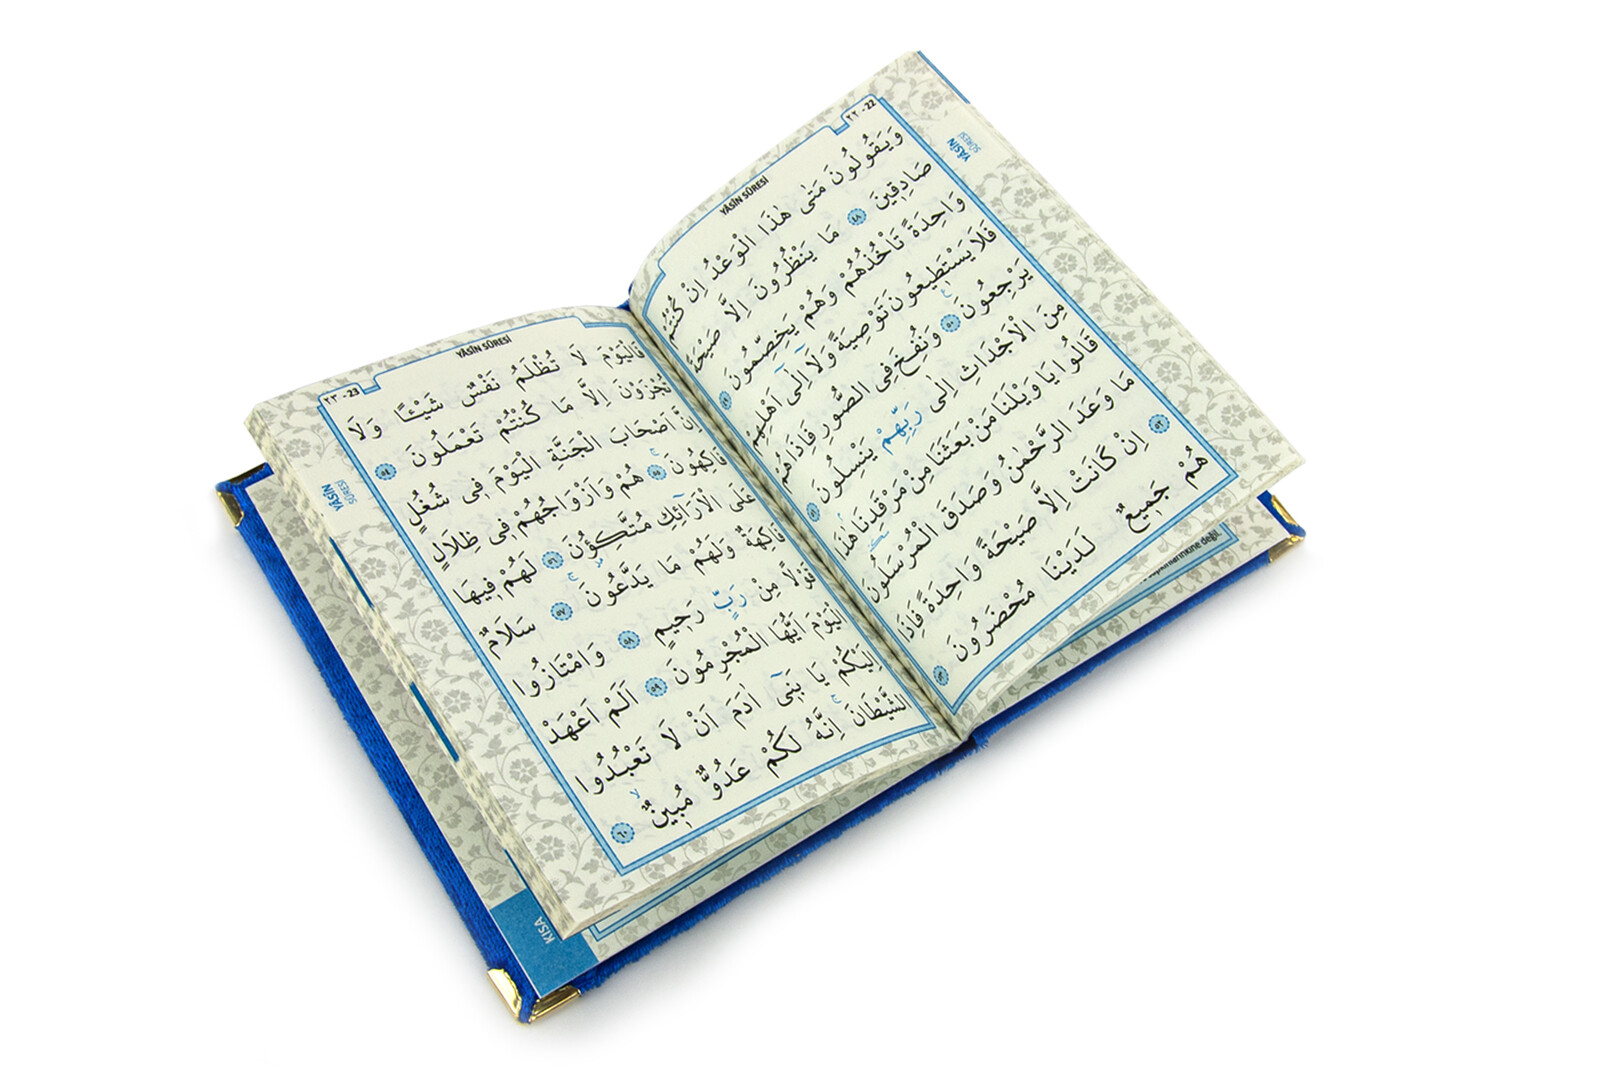 ٢٢ - 22
YÂSÎN SÛRESİ
YÂSÎN
SÛRESİ
وَيَقُولُونَ مَتٰى هٰذَا الْوَعْدُ اِنْ كُنْتُمْ
صَادِقِينَ ﴿٤٨﴾ مَا يَنْظُرُونَ اِلَّا صَيْحَةً
وَاحِدَةً تَاْخُذُهُمْ وَهُمْ يَخِصِّمُونَ ﴿٤٩﴾
فَلَا يَسْتَطِيعُونَ تَوْصِيَةً وَلَٓا اِلٰٓى اَهْلِهِمْ
يَرْجِعُونَ ﴿٥٠﴾ وَنُفِخَ فِى الصُّورِ فَاِذَا هُمْ
مِنَ الْاَجْدَاثِ اِلٰى رَبِّهِمْ يَنْسِلُونَ ﴿٥١﴾
قَالُوا يَا وَيْلَنَا مَنْ بَعَثَنَا مِنْ مَرْقَدِنَا هٰذَا
مَا وَعَدَ الرَّحْمٰنُ وَصَدَقَ الْمُرْسَلُونَ
﴿٥٢﴾ اِنْ كَانَتْ اِلَّا صَيْحَةً وَاحِدَةً فَاِذَا
هُمْ جَمِيعٌ لَدَيْنَا مُحْضَرُونَ ﴿٥٣﴾
٢٣ - 23
YÂSÎN SÛRESİ
YÂSÎN
SÛRESİ
فَالْيَوْمَ لَا تُظْلَمُ نَفْسٌ شَيْـًٔا وَلَا
تُجْزَوْنَ اِلَّا مَا كُنْتُمْ تَعْمَلُونَ ﴿٥٤﴾
اِنَّ اَصْحَابَ الْجَنَّةِ الْيَوْمَ فِى شُغُلٍ
فَاكِهُونَ ﴿٥٥﴾ هُمْ وَاَزْوَاجُهُمْ فِى ظِلَالٍ
عَلَى الْاَرَٓائِكِ مُتَّكِؤُنَ ﴿٥٦﴾ لَهُمْ فِيهَا
فَاكِهَةٌ وَلَهُمْ مَا يَدَّعُونَ ﴿٥٧﴾ سَلَامٌ
قَوْلًا مِنْ رَبٍّ رَحِيمٍ ﴿٥٨﴾ وَامْتَازُوا
الْيَوْمَ اَيُّهَا الْمُجْرِمُونَ ﴿٥٩﴾ اَلَمْ اَعْهَدْ
اِلَيْكُمْ يَا بَنِٓى اٰدَمَ اَنْ لَا تَعْبُدُوا
الشَّيْطَانَ اِنَّهُ لَكُمْ عَدُوٌّ مُبِينٌ ﴿٦٠﴾
KISA
değil.